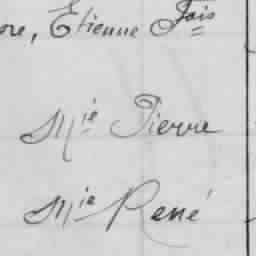 ore, Etienne Fois
Mie Pierre
Mie René